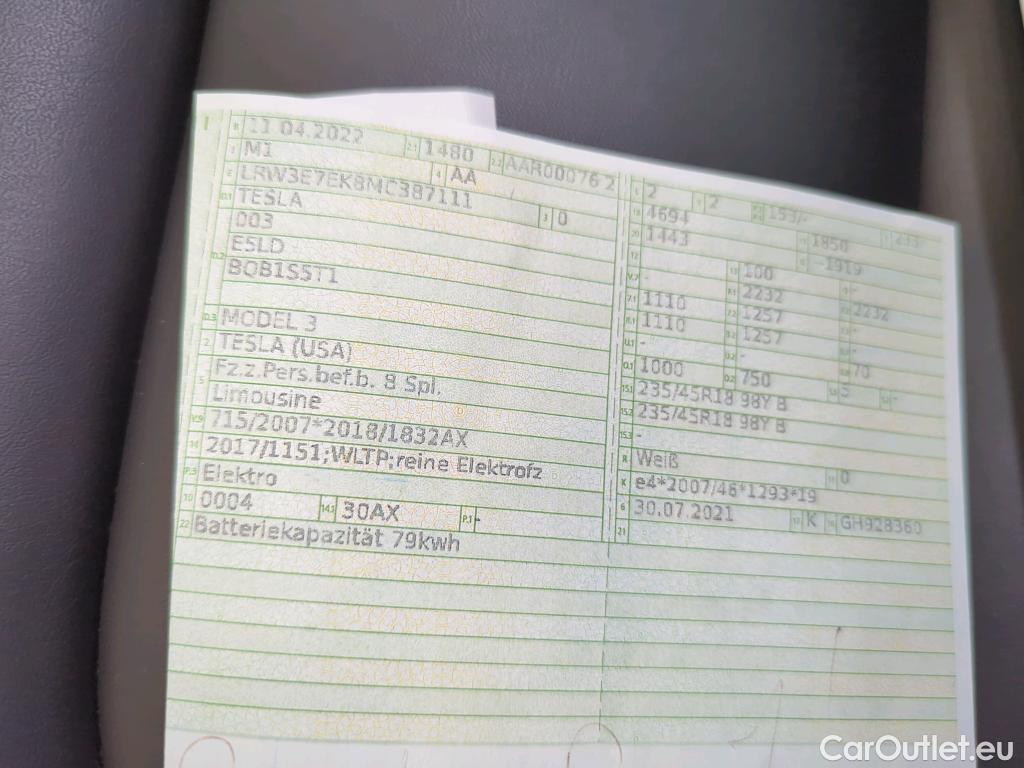 B 11 04.2022 2.1 1480 2.2 AAR00076 2
J M1 4 AA
E LRW3E7EK8MC387111 3 0
D.1 TESLA
003
D.2 E5LD
B0B1S5T1
D.3 MODEL 3
2 TESLA (USA)
5 Fz.z.Pers.bef.b. 8 Spl.
Limousine
V.9 715/2007*2018/1832AX
14 2017/1151;WLTP;reine Elektrofz
P.3 Elektro
10 0004 14.1 30AX P.1 -
22 Batteriekapazität 79kwh
2 2 153/-
18 4694 1850
20 1443 -1919
12 - 13 100 -
V.7 - F.1 2232 2232
7.1 1110 7.2 1257 -
8.1 1110 8.2 1257 -
U.1 - U.2 - 70
O.1 1000 O.2 750 S.1 5 S.2 -
15.1 235/45R18 98Y B
15.2 235/45R18 98Y B
15.3 -
R Weiß 0
K e4*2007/46*1293*19
6 30.07.2021 17 K 16 GH928360
21
CarOutlet.eu